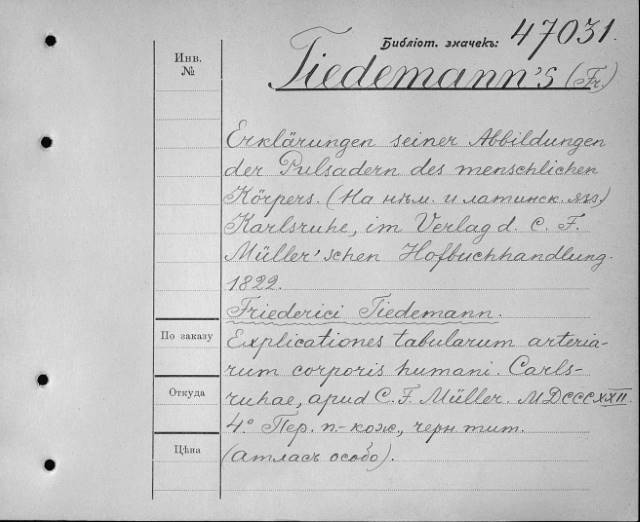 Библіот. значекъ: 47031.
Инв.
№
Tiedemann's (Fr.)
Erklärungen seiner Abbildungen
der Pulsadern des menschlichen
Körpers. (На нѣм. и латинск. яз.)
Karlsruhe, im Verlag d. C. F.
Müller'schen Hofbuchhandlung.
1822.
Friederici Tiedemann.
По заказу
Explicationes tabularum arteria-
rum corporis humani. Carls-
Откуда
ruhae, apud C. F. Müller. MDCCCXXII.
4° Пер. п.-кож., черн тит.
Цѣна
(атласъ особо).